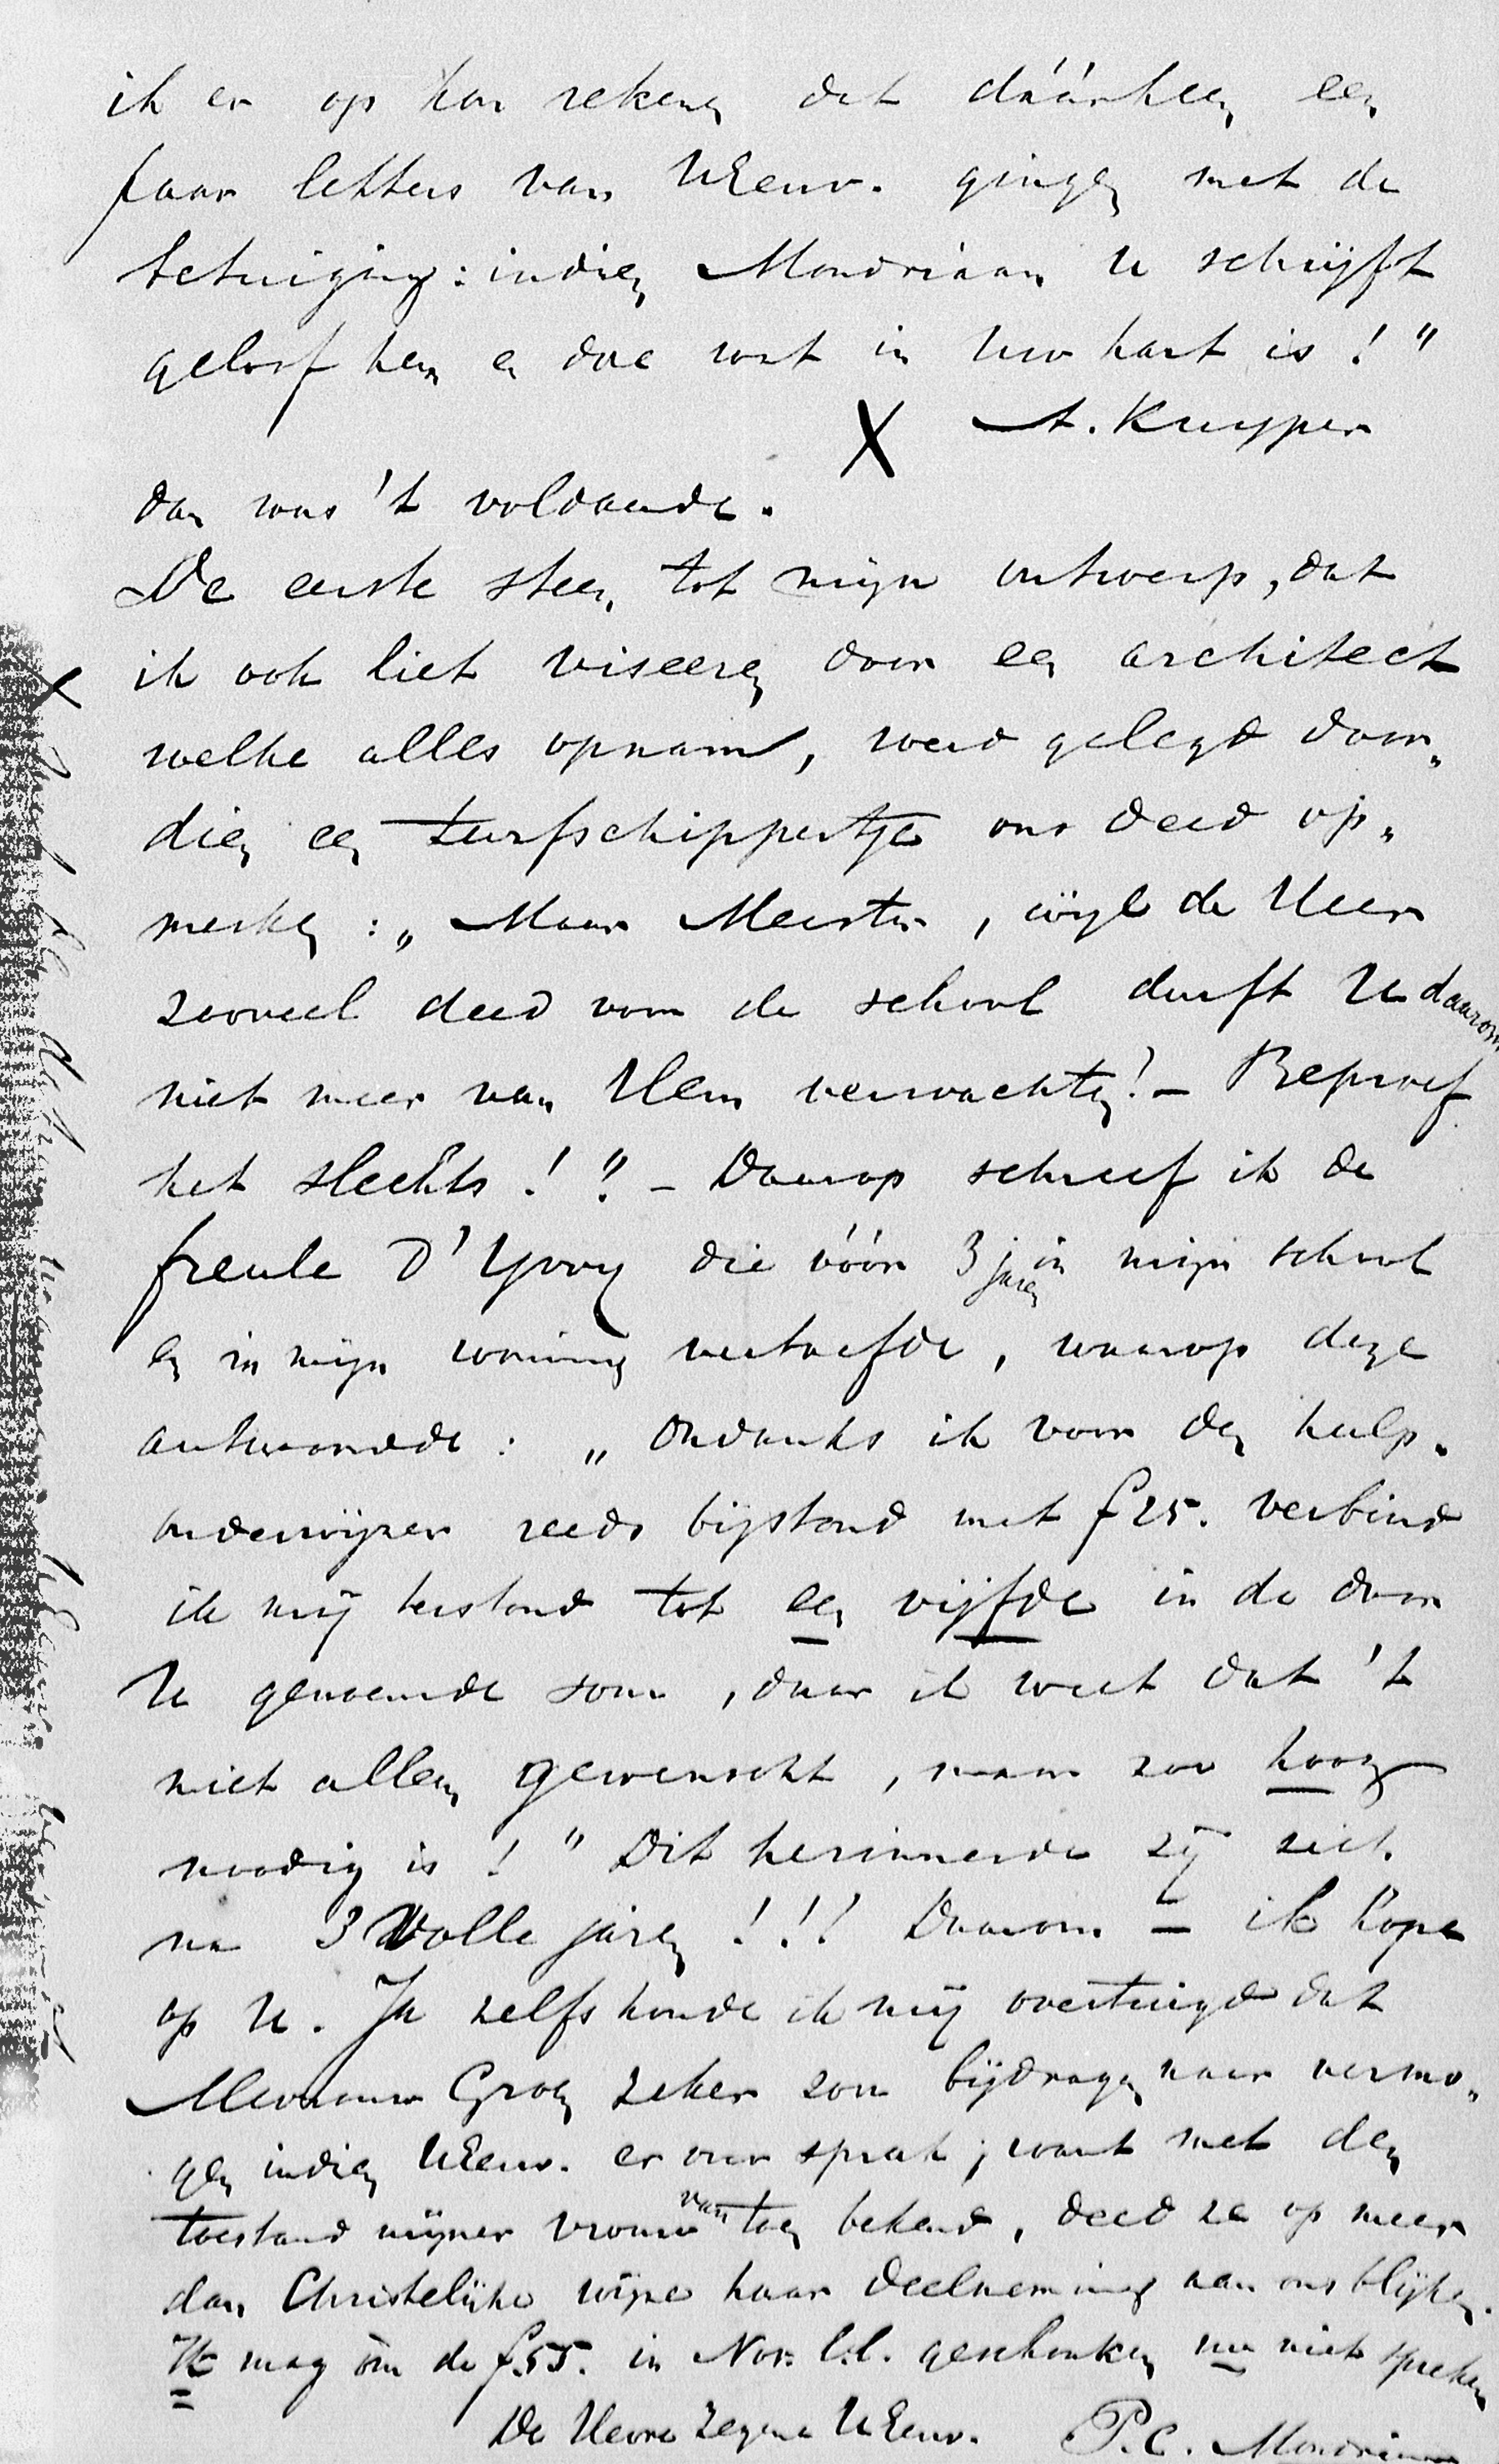 ik er op kan rekenen dat dáárheen een
paar letters van UEerw. gingen met de
betuiging: indien Mondriaan U schrijft
geloof hem en doe wat in Uw hart is!"
X A. Kuyper
dan was 't voldoende.
De eerste steen tot mijn ontwerp, dat
ik ook liet viseeren door een architect
welke alles opnam, werd gelegd door„
dien een turfschippertje ons deed op„
merken: „Maar Meester, wijl de Heer
zooveel deed voor de school durft U daarom
niet meer van Hem verwachten! — Beproef
het slechts!" — Daarop schreef ik de
freule D'Yvoy die vóór 3 jaren in mijn school
en in mijn woning vertoefde, waarop deze
antwoordde: „Ondanks ik voor den hulp„
onderwijzer reeds bijstond met f 25. verbind
ik mij terstond tot een vijfde in de door
U genoemde som, daar ik weet dat 't
niet alleen gewenscht, maar zoo hoog
noodig is!" Dit herinnerde zij zich
na 3 volle jaren!!! Daarom — ik hope
op U. Ja zelfs houde ik mij overtuigd dat
Mevrouw Groen zeker zou bijdragen naar vermo„
gen indien UEerw. er over sprak; want met den
toestand mijner vrouw van toen bekend, deed ze op meer
dan Christelijke wijze haar deelneming aan ons blijken.
Ik mag om de f.55. in Nov. l.l. geschonken nu niet spreken
De Heere zegene UEerw. P.C. Mondriaan